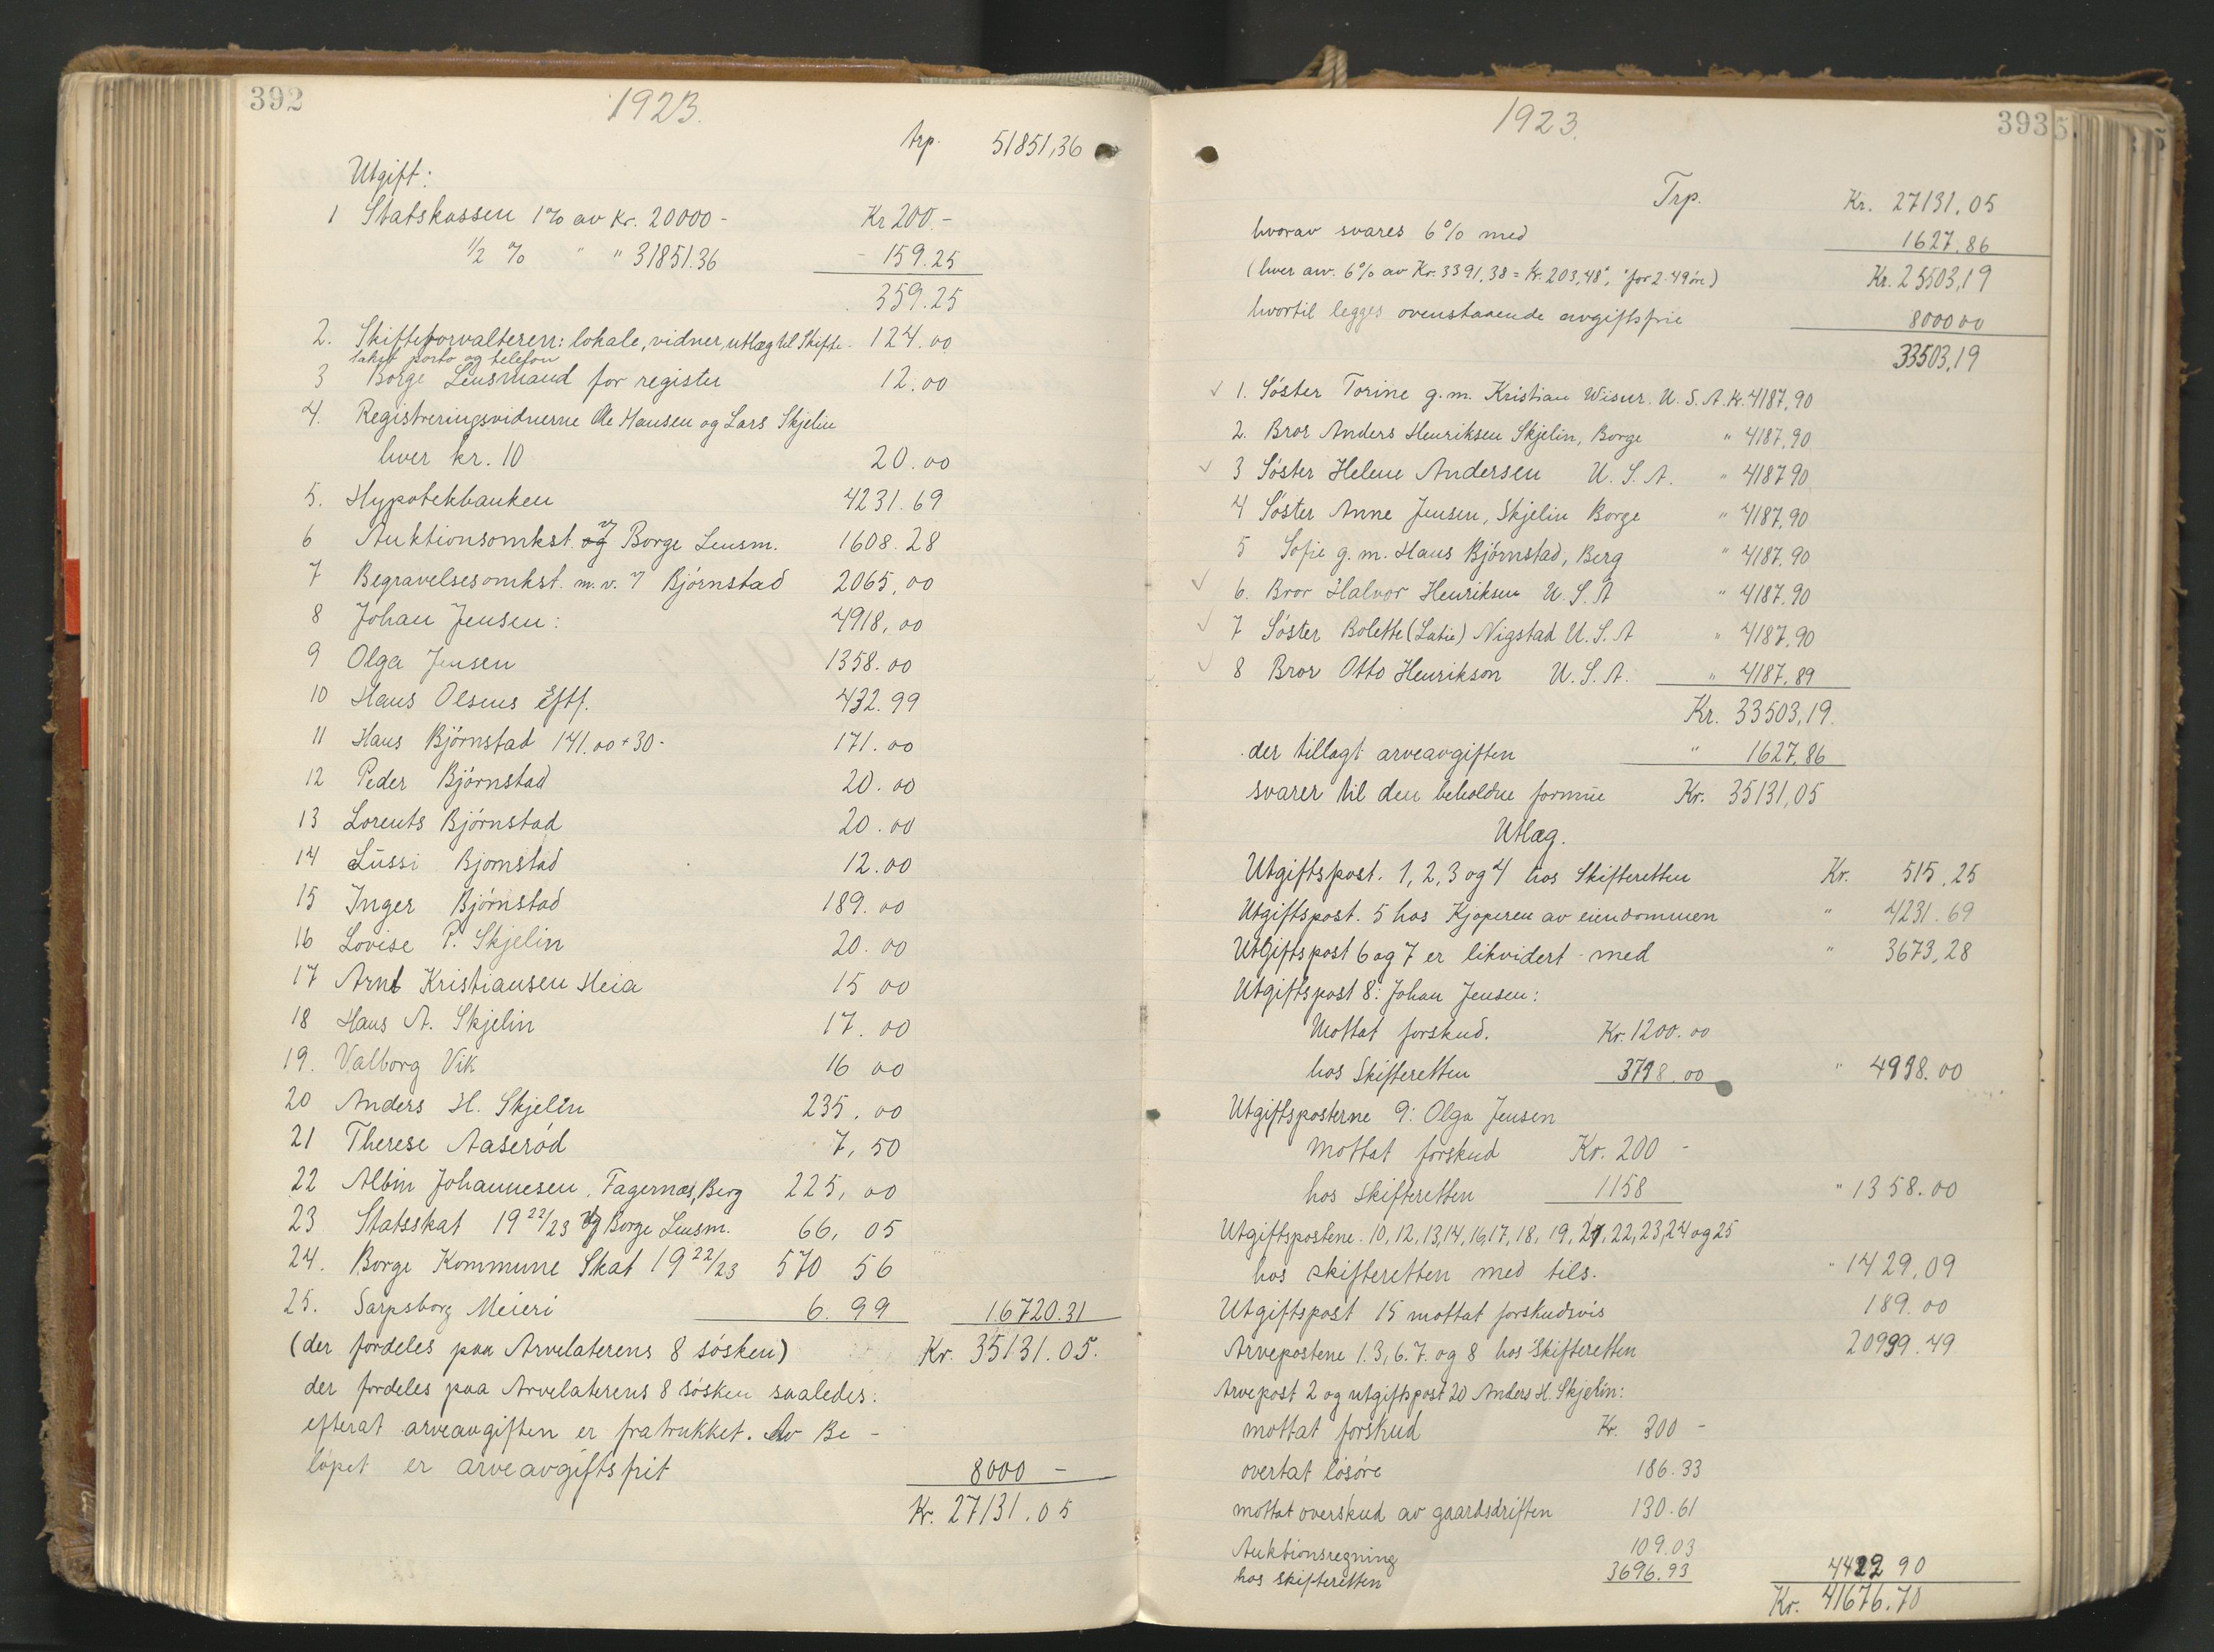 392
1923.
trp. 51851,36
Utgift:
1 Statskassen 1% av kr. 20000 - Kr 200. -
1/2 % " " 31851.36 - 159.25
359.25
2. Skifteforvalteren: lokale, vidner, utlæg til Skifte- 124.00
takst, porto og telefon
3 Borge Lensmand for register 12.00
4. Registreringsvidnerne Ole Hansen og Lars Skjelin
hver kr. 10 20.00
5. Hypotekbanken 4231.69
6 Auktionsomkst. Borge Lensm. 1608.28
7 Begravelsesomkst. m.v. Bjørnstad 2065,00
8 Johan Jensen: 4918,00
9 Olga Jensen 1358.00
10 Hans Olsens Eftf. 432.99
11 Hans Bjørnstad 141.00 + 30 - 171.00
12 Peder Bjørnstad 20.00
13 Lorents Bjørnstad 20.00
14 Lussi Bjørnstad 12.00
15 Inger Bjørnstad 189.00
16 Lovise P. Skjelin 20.00
17 Arnt Kristiansen Heia 15 00
18 Hans A. Skjelin 17.00
19. Valborg Vik 16 00
20 Anders H. Skjelin 235.00
21 Therese Aaserød 7,50
22 Albin Johannesen, Fagernæs, Berg 225,00
23 Statsskat 1922/23 Borge Lensm. 66,05
24. Borge Kommune Skat 1922/23 570 56
25. Sarpsborg Meieri 6.99 16720.31
(der fordeles paa Arvelaterens 8 søsken) Kr. 35131.05.
der fordeles paa Arvelaterens 8 søsken saaledes:
efterat arveavgiften er fratrukket. Av Be-
løpet er arveavgiftsfrit 8000 -
Kr. 27131.05
393
1923.
Trp. Kr. 27131.05
hvorav svares 6% med 1627.86
(hver arv. 6% av Kr. 3391,38 = kr. 203,48", "for 2. 49 øre) Kr. 25503,19
hvortil legges ovenstaaende avgiftsfrie 8000 00
33503,19
✓ 1. Søster Torine g.m. Kristian Wisur. U.S.A. kr. 4187,90
2. Bror Anders Henriksen Skjelin, Borge " 4187,90
✓ 3 Søster Helene Andersen U.S.A. " 4187 90
4 Søster Anne Jensen, Skjelin Borge " 4187,90
5 Sofie g.m. Hans Bjørnstad, Berg " 4187,90
✓ 6. Bror Halvor Henriksen U.S.A " 4187,90
✓ 7 Søster Bolette (Latie) Nigstad U.S.A " 4187,90
✓ 8 Bror Otto Henrikson U.S.A. " 4187,89
Kr. 33503,19.
der tillagt arveavgiften " 1627,86
svarer til den beholdne formue Kr. 35131,05
Utlæg.
Utgiftspost. 1, 2, 3 og 4 hos Skifteretten Kr. 515,25
Utgiftspost. 5 hos Kjøperen av eiendommen " 4231.69
Utgiftspost 6 og 7 er likvidert med " 3673,28
Utgiftspost 8: Johan Jensen:
Mottat forskud. Kr. 1200.00
hos Skifteretten 3718.00 " 4918.00
Utgiftsposterne 9: Olga Jensen
Mottat forskud Kr. 200 -
hos Skifteretten 1158 " 1358.00
Utgiftspostene. 10, 12, 13, 14, 16, 17, 18, 19, 21, 22, 23, 24 og 25
hos skifteretten med tils. " 1429,09
Utgiftspost 15 mottat forskudsvis 189.00
Arvepostene 1.3, 6.7. og 8 hos Skifteretten 20939.49
Arvepost 2 og utgiftspost 20 Anders H. Skjelin:
mottat forskud Kr. 300 -
overtat løsøre 186.33
mottat overskud av gaardsdriften 130.61
Auktionsregning 109.03
hos skifteretten 3696.93 4422 90
Kr. 41676.70